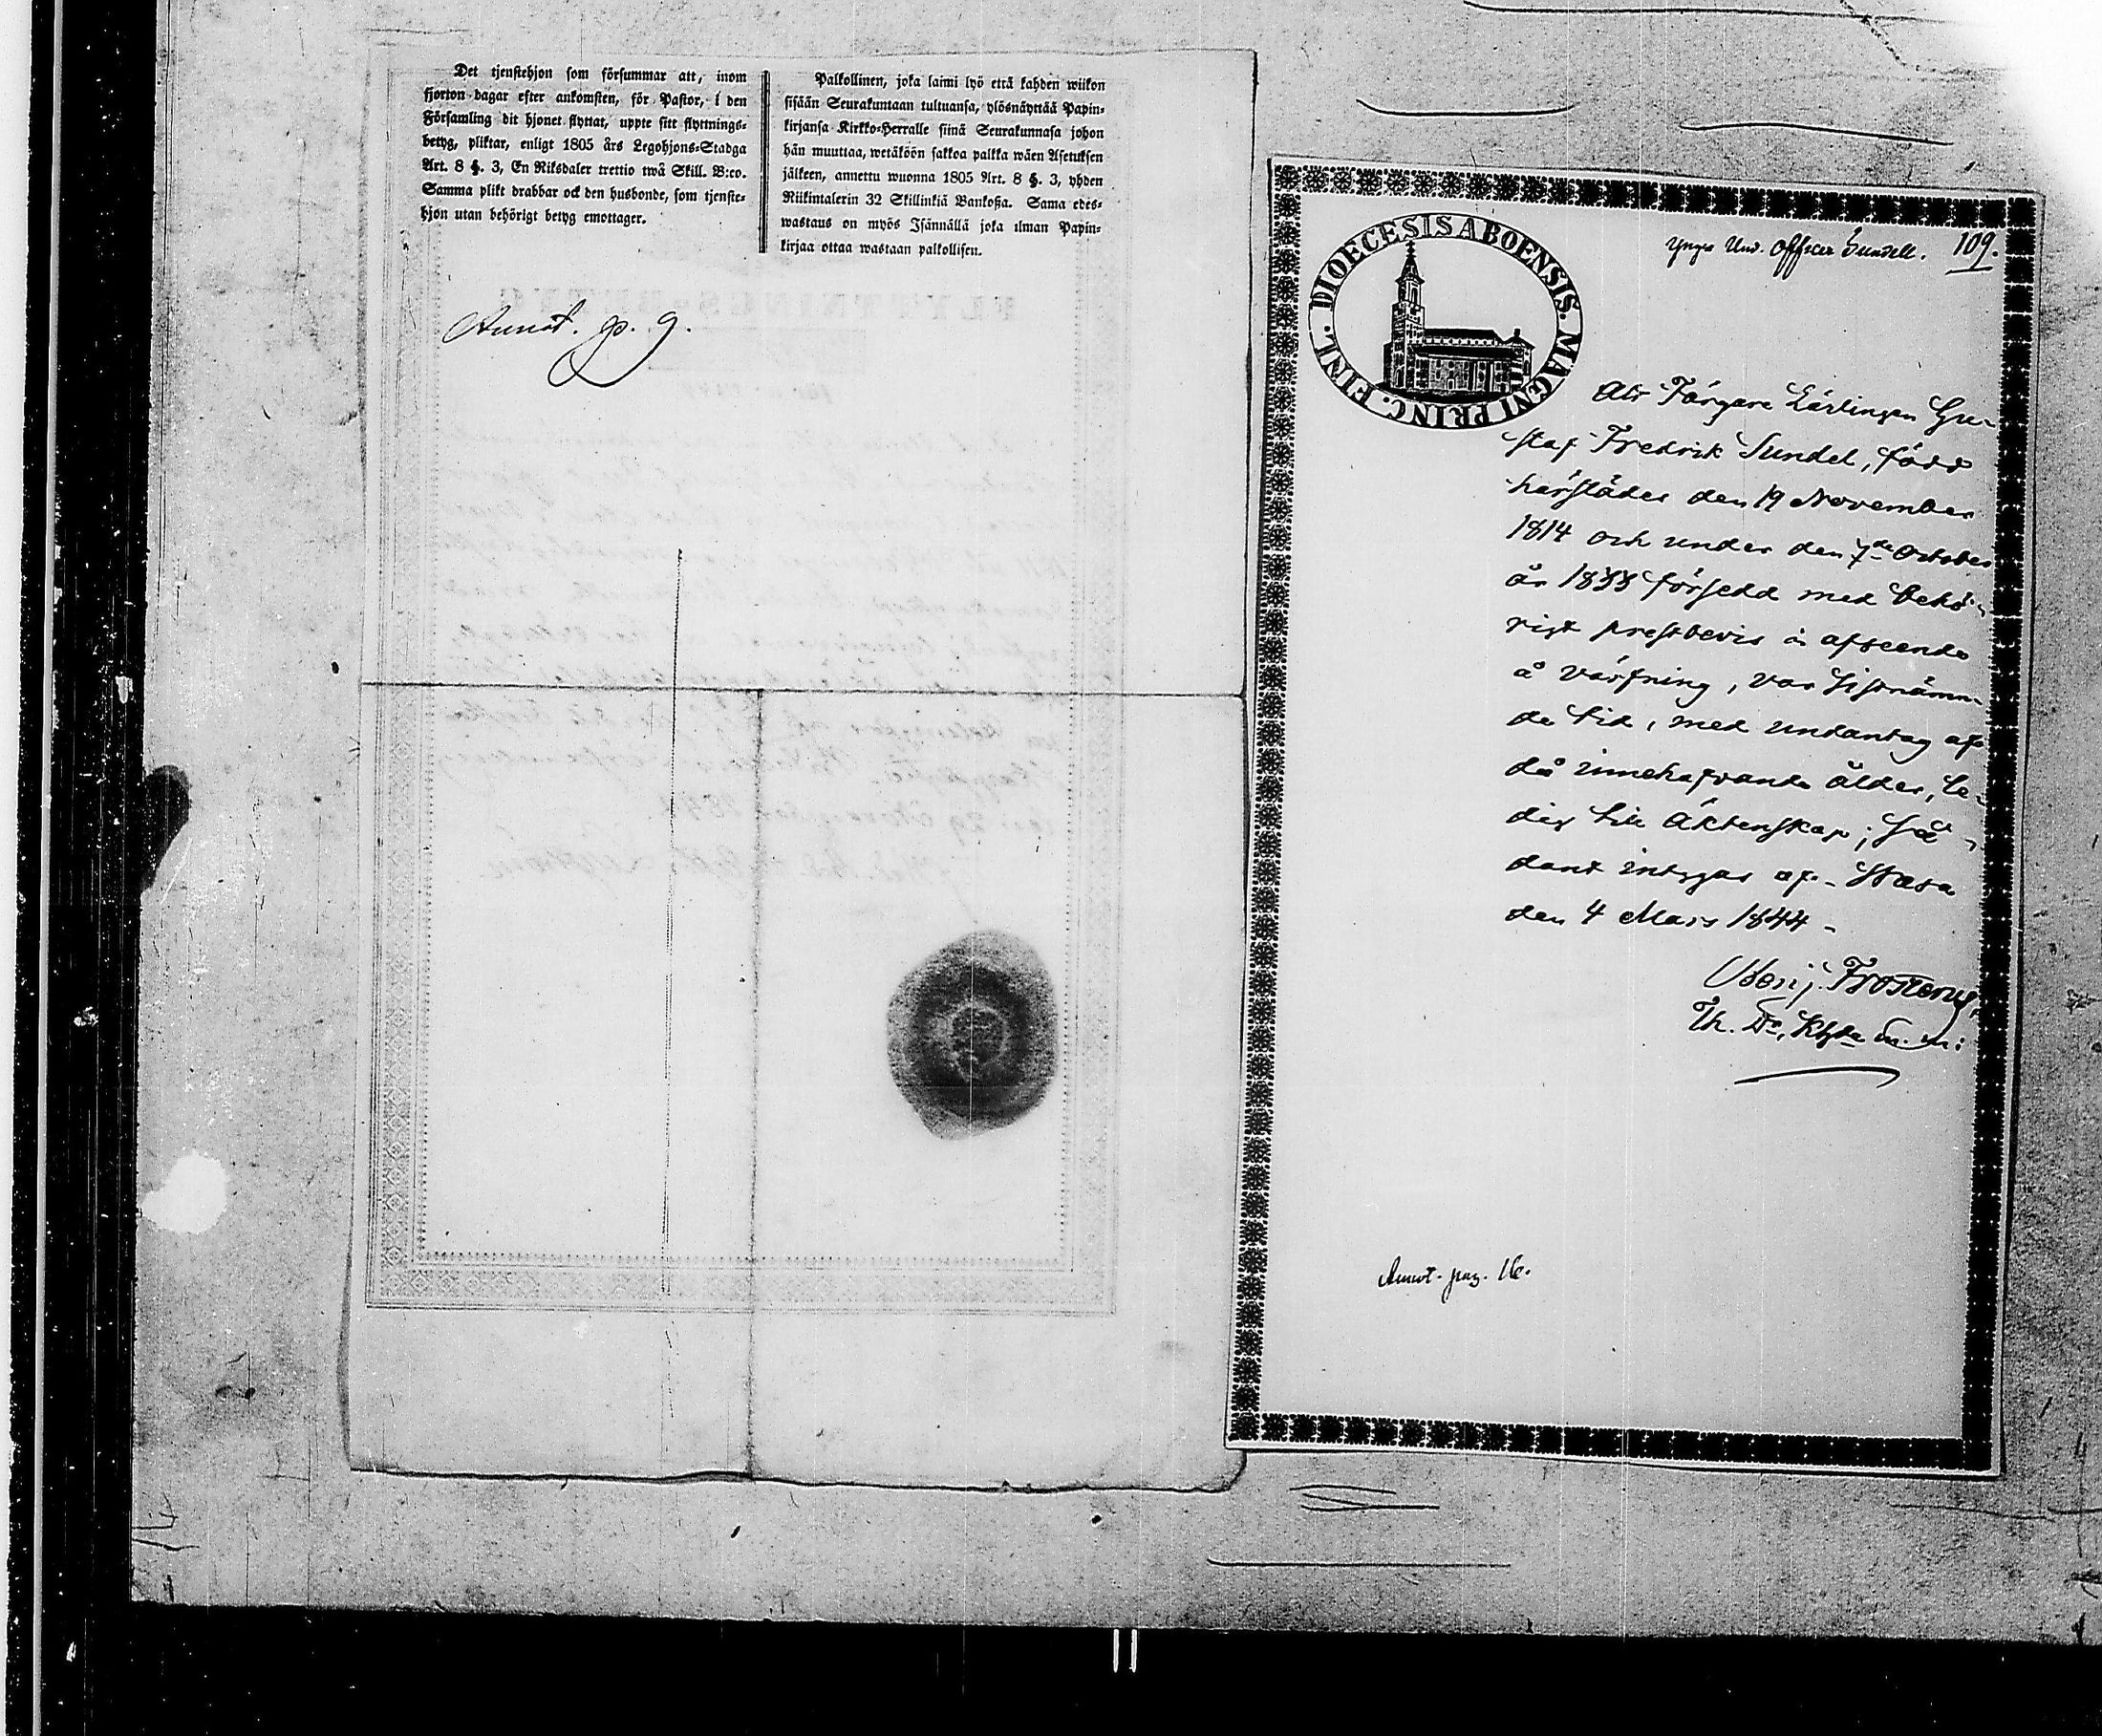 Det tjenstehjon som försummar att, inom
fjorton dagar efter ankomsten, för Pastor, i den
Församling dit hjonet flyttat, uppte sitt flyttnings-
betyg, pliktar, enligt 1805 års Legohjons-Stadga
Art. 8 §. 3, En Riksdaler trettio twå Skill. B:co.
Samma plikt drabbar ock den husbonde, som tjenste-
hjon utan behörigt betyg emottager.
Palkollinen, joka laimi lyö että kahden wiikon
sisään Seurakuntaan tultuansa, ylösnäyttää Papin-
kirjansa Kirkko-Herralle siinä Seurakunnasa johon
hän muuttaa, wetäköön sakkoa palkka wäen Asetuksen
jälkeen, annettu wuonna 1805 Art. 8 §. 3, yhden
Riikintalerin 32 Skillinkiä Bankoßa. Sama edes-
wastaus on myös Isännällä joka ilman Papin-
kirjaa ottaa wastaan palkollisen.
Annot. p. 9.
Yngre Und. Officer Sundell. 109.
DIOECESIS ABOENSIS. MAGNI PRINC. FINL.
Att Färgare Lärlingen Gu-
staf Fredrik Sundel, född
härstädes den 19 November
1814 och under den 7de October
år 1833 försedd med behö-
rigt prestbevis i afseende
å värfning, var sistnämn-
de tid, med undantag af
då innehafvande ålder, le-
dig till Äktenskap; så-
dant intygas af. Wasa
den 4 Mars 1844 -
Benj. Frosterus,
Th. Dr, Khde m. m:
Annot. pag. 16.